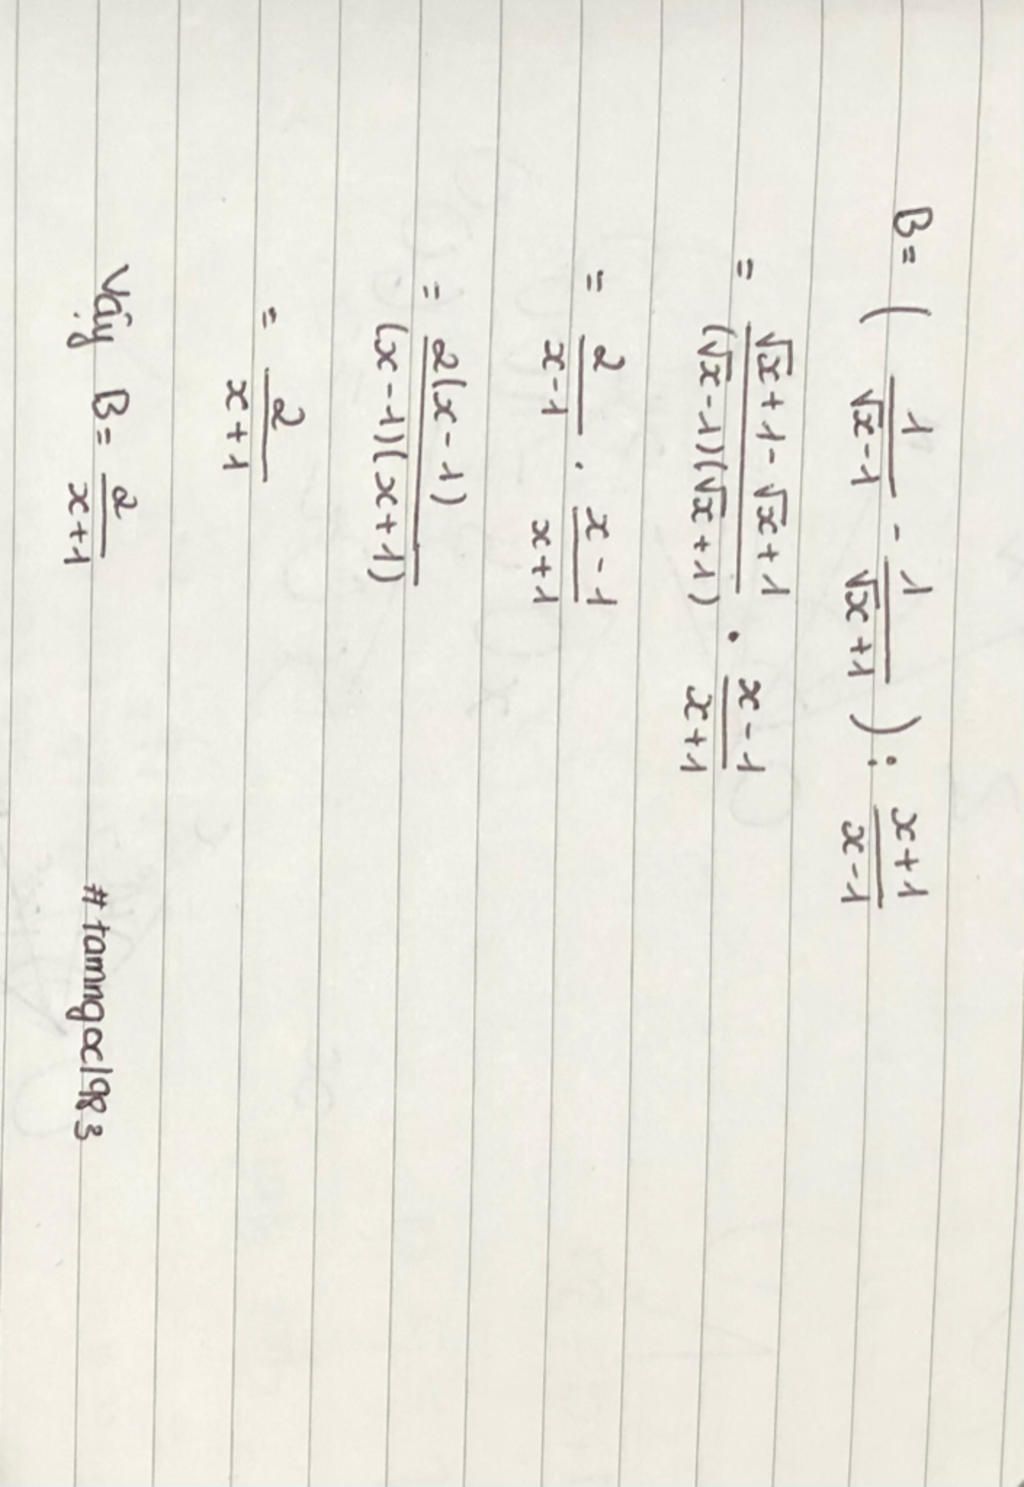 B = ( 1/(√x - 1) - 1/(√x + 1) ) : (x + 1)/(x - 1)
= (√x + 1 - √x + 1)/((√x - 1)(√x + 1)) . (x - 1)/(x + 1)
= 2/(x - 1) . (x - 1)/(x + 1)
= 2(x - 1)/((x - 1)(x + 1))
= 2/(x + 1)
Vậy B = 2/(x + 1)
#tamngoc1983